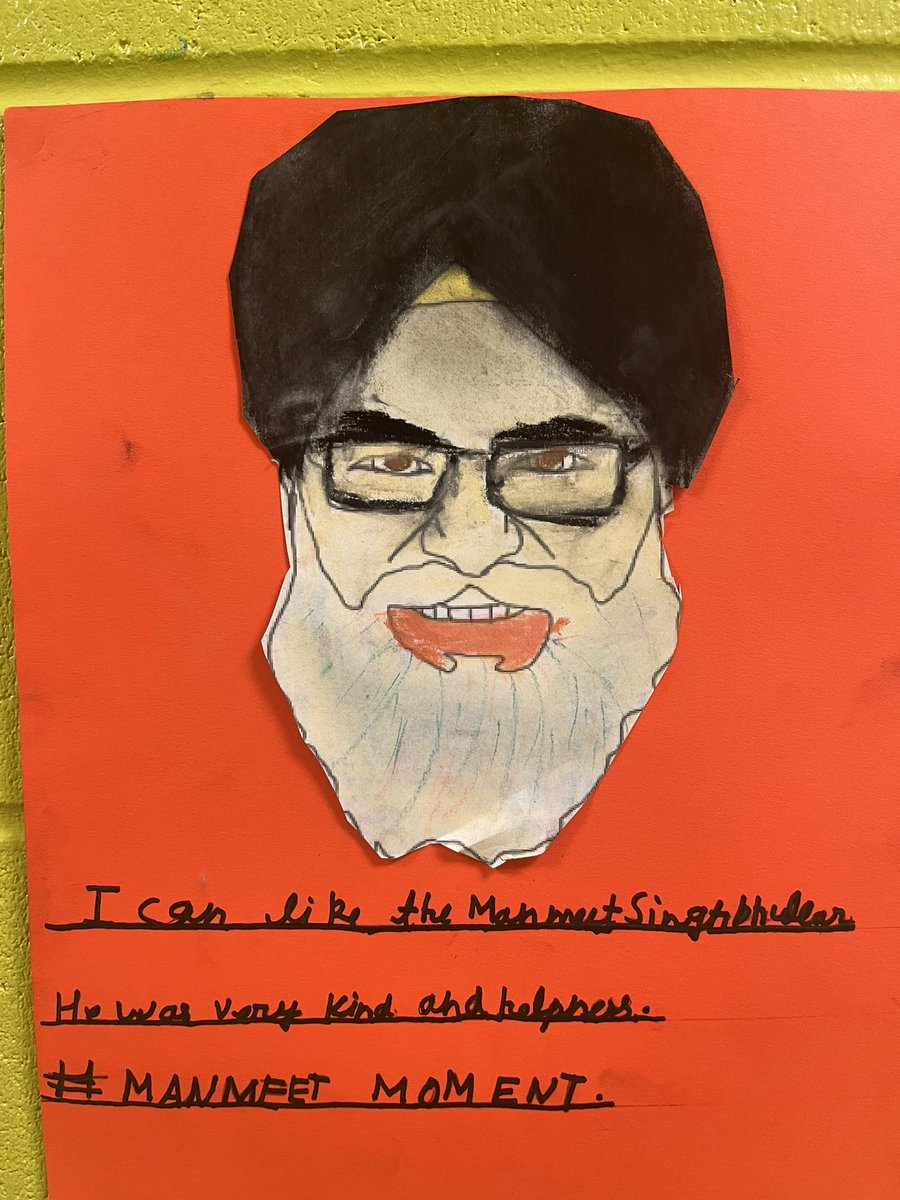 I can like the Manmeet Singh bhullar
He was very kind and helpness.
# MANMEET MOMENT.